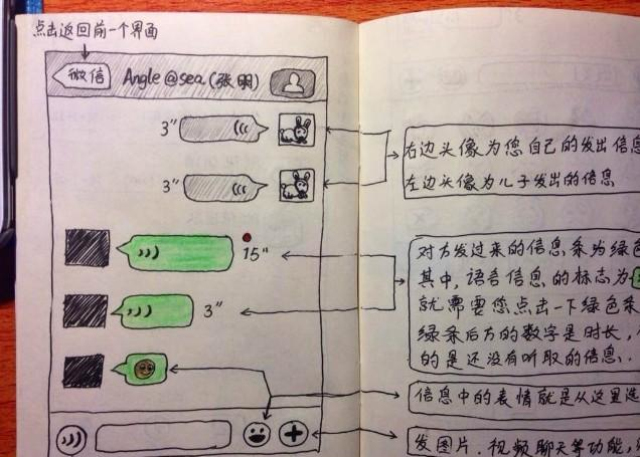 点击返回前一个界面
微信 Angle@sea(张明)
3"
3"
右边头像为您自己的发出信息
左边头像为儿子发出的信息
15"
3"
对方发过来的信息条为绿色
其中,语音信息的标志为
就需要您点击一下绿色条
绿条后方的数字是时长,
的是还没有听取的信息.
信息中的表情就是从这里选
发图片、视频聊天等功能,